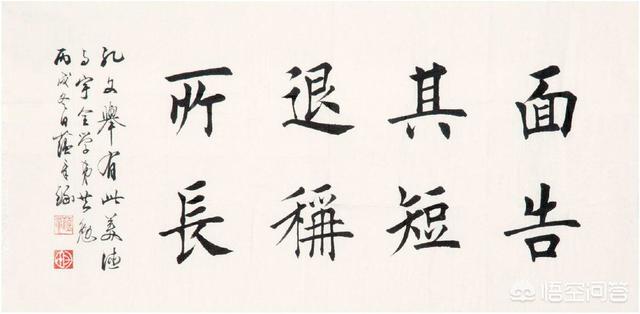 面告
其短
退稱
所長
孔文舉有此美德
与宇全学弟共勉
丙戌冬日
悟空问答